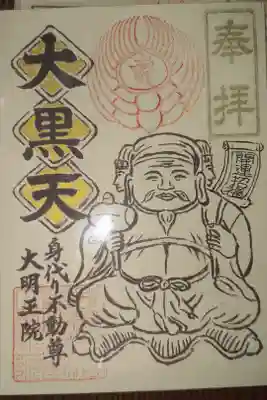 奉拝
開運招福
大黒天
身代り不動尊
大明王院